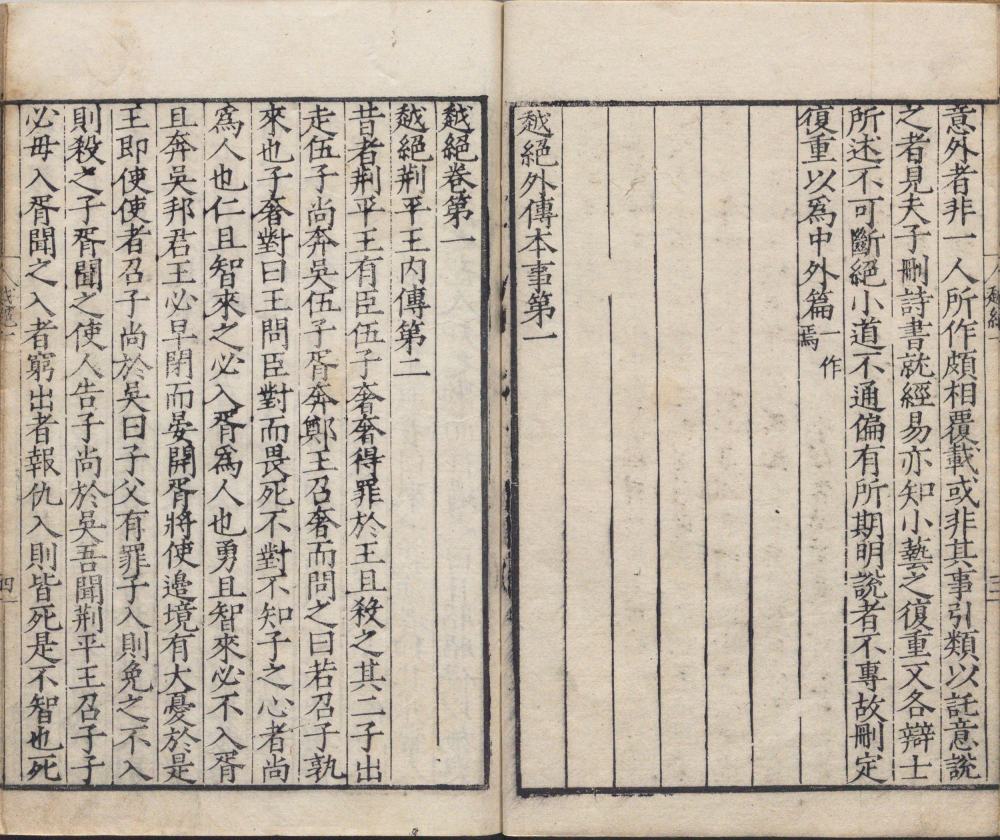 意外者非一人所作頗相覆載或非其事引類以託意說
之者見夫子刪詩書就經易亦知小藝之復重又各辯士
所述不可斷絕小道不通偏有所期明說者不專故刪定
復重以爲中外篇一作焉
越絕外傳本事第一
越絕卷第一
越絕荆平王內傳第二
昔者荆平王有臣伍子奢奢得罪於王且殺之其二子出
走伍子尚奔吳伍子胥奔鄭王召奢而問之曰若召子孰
來也子奢對曰王問臣對而畏死不對不知子之心者尚
爲人也仁且智來之必入胥爲人也勇且智來必不入胥
且奔吳邦君王必早閉而晏開胥將使邊境有大憂於是
王即使使者召子尚於吳曰子父有罪子入則免之不入
則殺之子胥聞之使人告子尚於吳吾聞荆平王召子子
必毋入胥聞之入者窮出者報仇入則皆死是不智也死
四